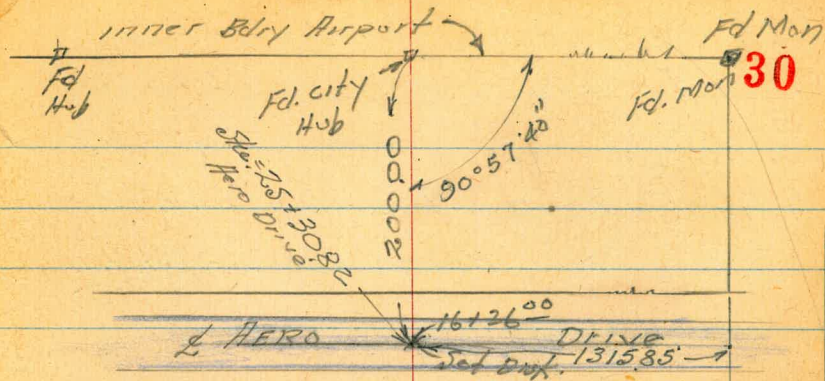 Inner Bdry Airport
Fd Mon
30
Fd
Hub
Fd. City
Hub
Fd. Mon
90°57'40"
200.00
Sta. = 25+30.82
Aero Drive
16+26.00
℄ AERO Drive
Set Disk. 1315.85